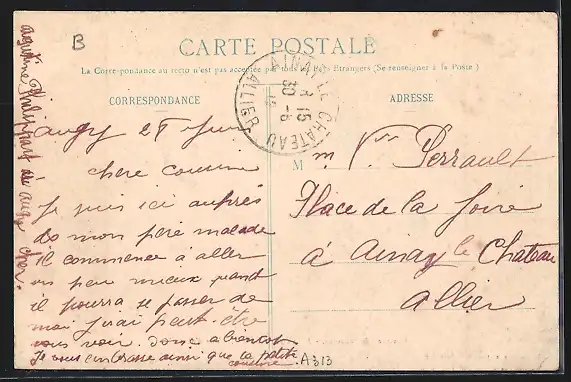 B
CARTE POSTALE
La Correspondance au recto n'est pas acceptée par tous les pays Étrangers (Se renseigner à la Poste)
CORRESPONDANCE
ADRESSE
AINAY-LE-CHATEAU
ALLIER
15
30 -6
augy 28 Juin
chere cousine
Je suis ici auprés
de mon pére malade
il commence à aller
un peu mieux quand
il pourra se passer de
moi j'irai peut-être
vous voir donc a bientot
Je vous embrasse ainsi que la petite
cousine
augustine Philippart à augy cher.
M
m. Vve Perrault
Place de la foire
à Ainay le Chateau
Allier
A313